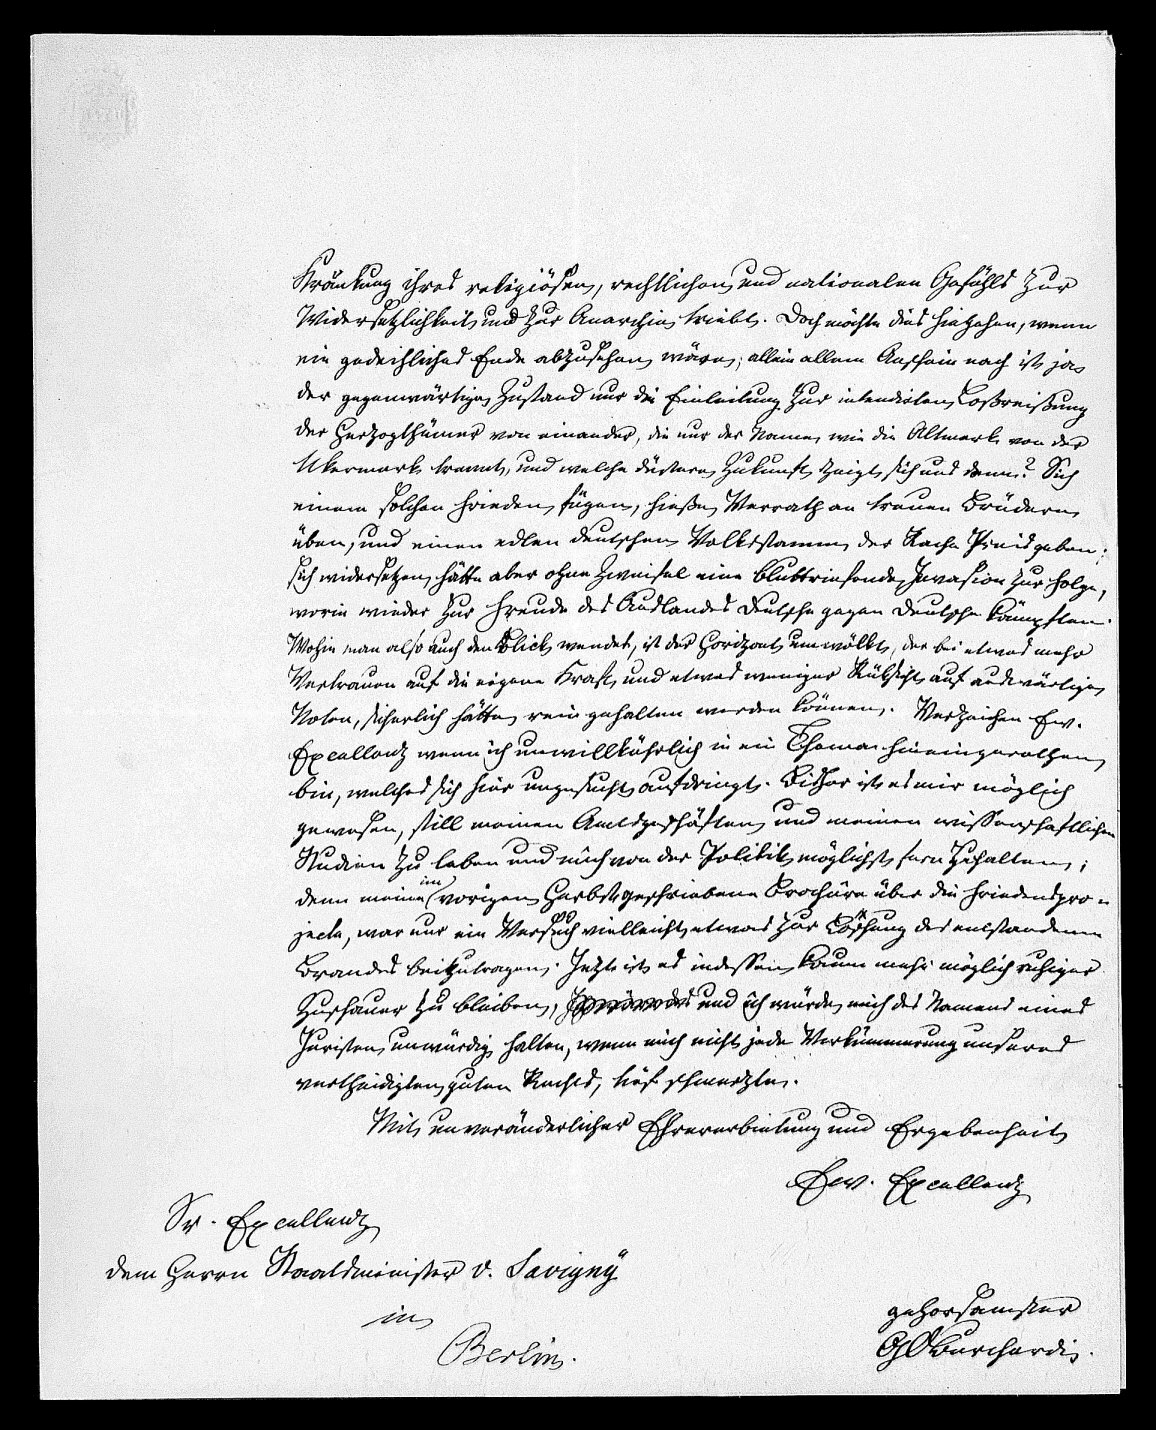 Kränkung ihres religiösen, rechtlichen und nationalen Gefühls zur
Widersetzlichkeit und zur Anarchie treibt. Doch möchte dies hingehen, wenn
ein gedeihliches Ende abzusehen wäre; allein allem Anschein nach ist ja
der gegenwärtige Zustand nur die Einleitung zur intendirten Losreißung
der Herzogthümer von einander, die nur der Name, wie die Altmark von der
Ukermark trennt, und welche düstere Zukunft zeigt sich uns dann? Sich
einem solchen Frieden fügen, hieße Verrath an treuen Brüdern
üben, und einen edlen deutschen Volksstamm der Rache Preis geben;
sich widersetzen hätte aber ohne Zweifel eine bluttriefende Invasion zur Folge,
worin wieder zur Freude des Auslandes Deutsche gegen Deutsche kämpften.
Wohin man also auch den Blick wendet, ist der Horizont umwölkt, der bei etwas mehr
Vertrauen auf die eigene Kraft und etwas weniger Rüksicht auf auswärtige
Noten, sicherlich hätte rein gehalten werden können. Verzeihen Ew.
Excellentz wenn ich unwillkührlich in ein Thema hineingerathen
bin, welches sich hier ungesucht aufdringt. Bisher ist es mir möglich
gewesen, still meinen Amtsgeschäften und meinen wissenschaftlichen
Studien zu leben und mich von der Politik möglichst fern zu halten;
denn meine im vorigen Herbst geschriebene Brochüre über die Friedenspro-
jecte, war nur ein Versuch vielleicht etwas zur Löschung des entstandenen
Brandes beizutragen. Jetzt ist es indessen kaum mehr möglich ruhiger
Zuschauer zu bleiben, und ich würde mich des Namens eines
Juristen unwürdig halten, wenn mich nicht jede Verkümmerung unseres
vertheidigten guten Rechts, tief schmerzte.
Mit unveränderlicher Ehrerbietung und Ergebenheit
Ew. Excellentz
Sr. Excellentz
dem Herrn Staatsminister v. Savigny
in
Berlin.
gehorsamster
GCBurchardi.